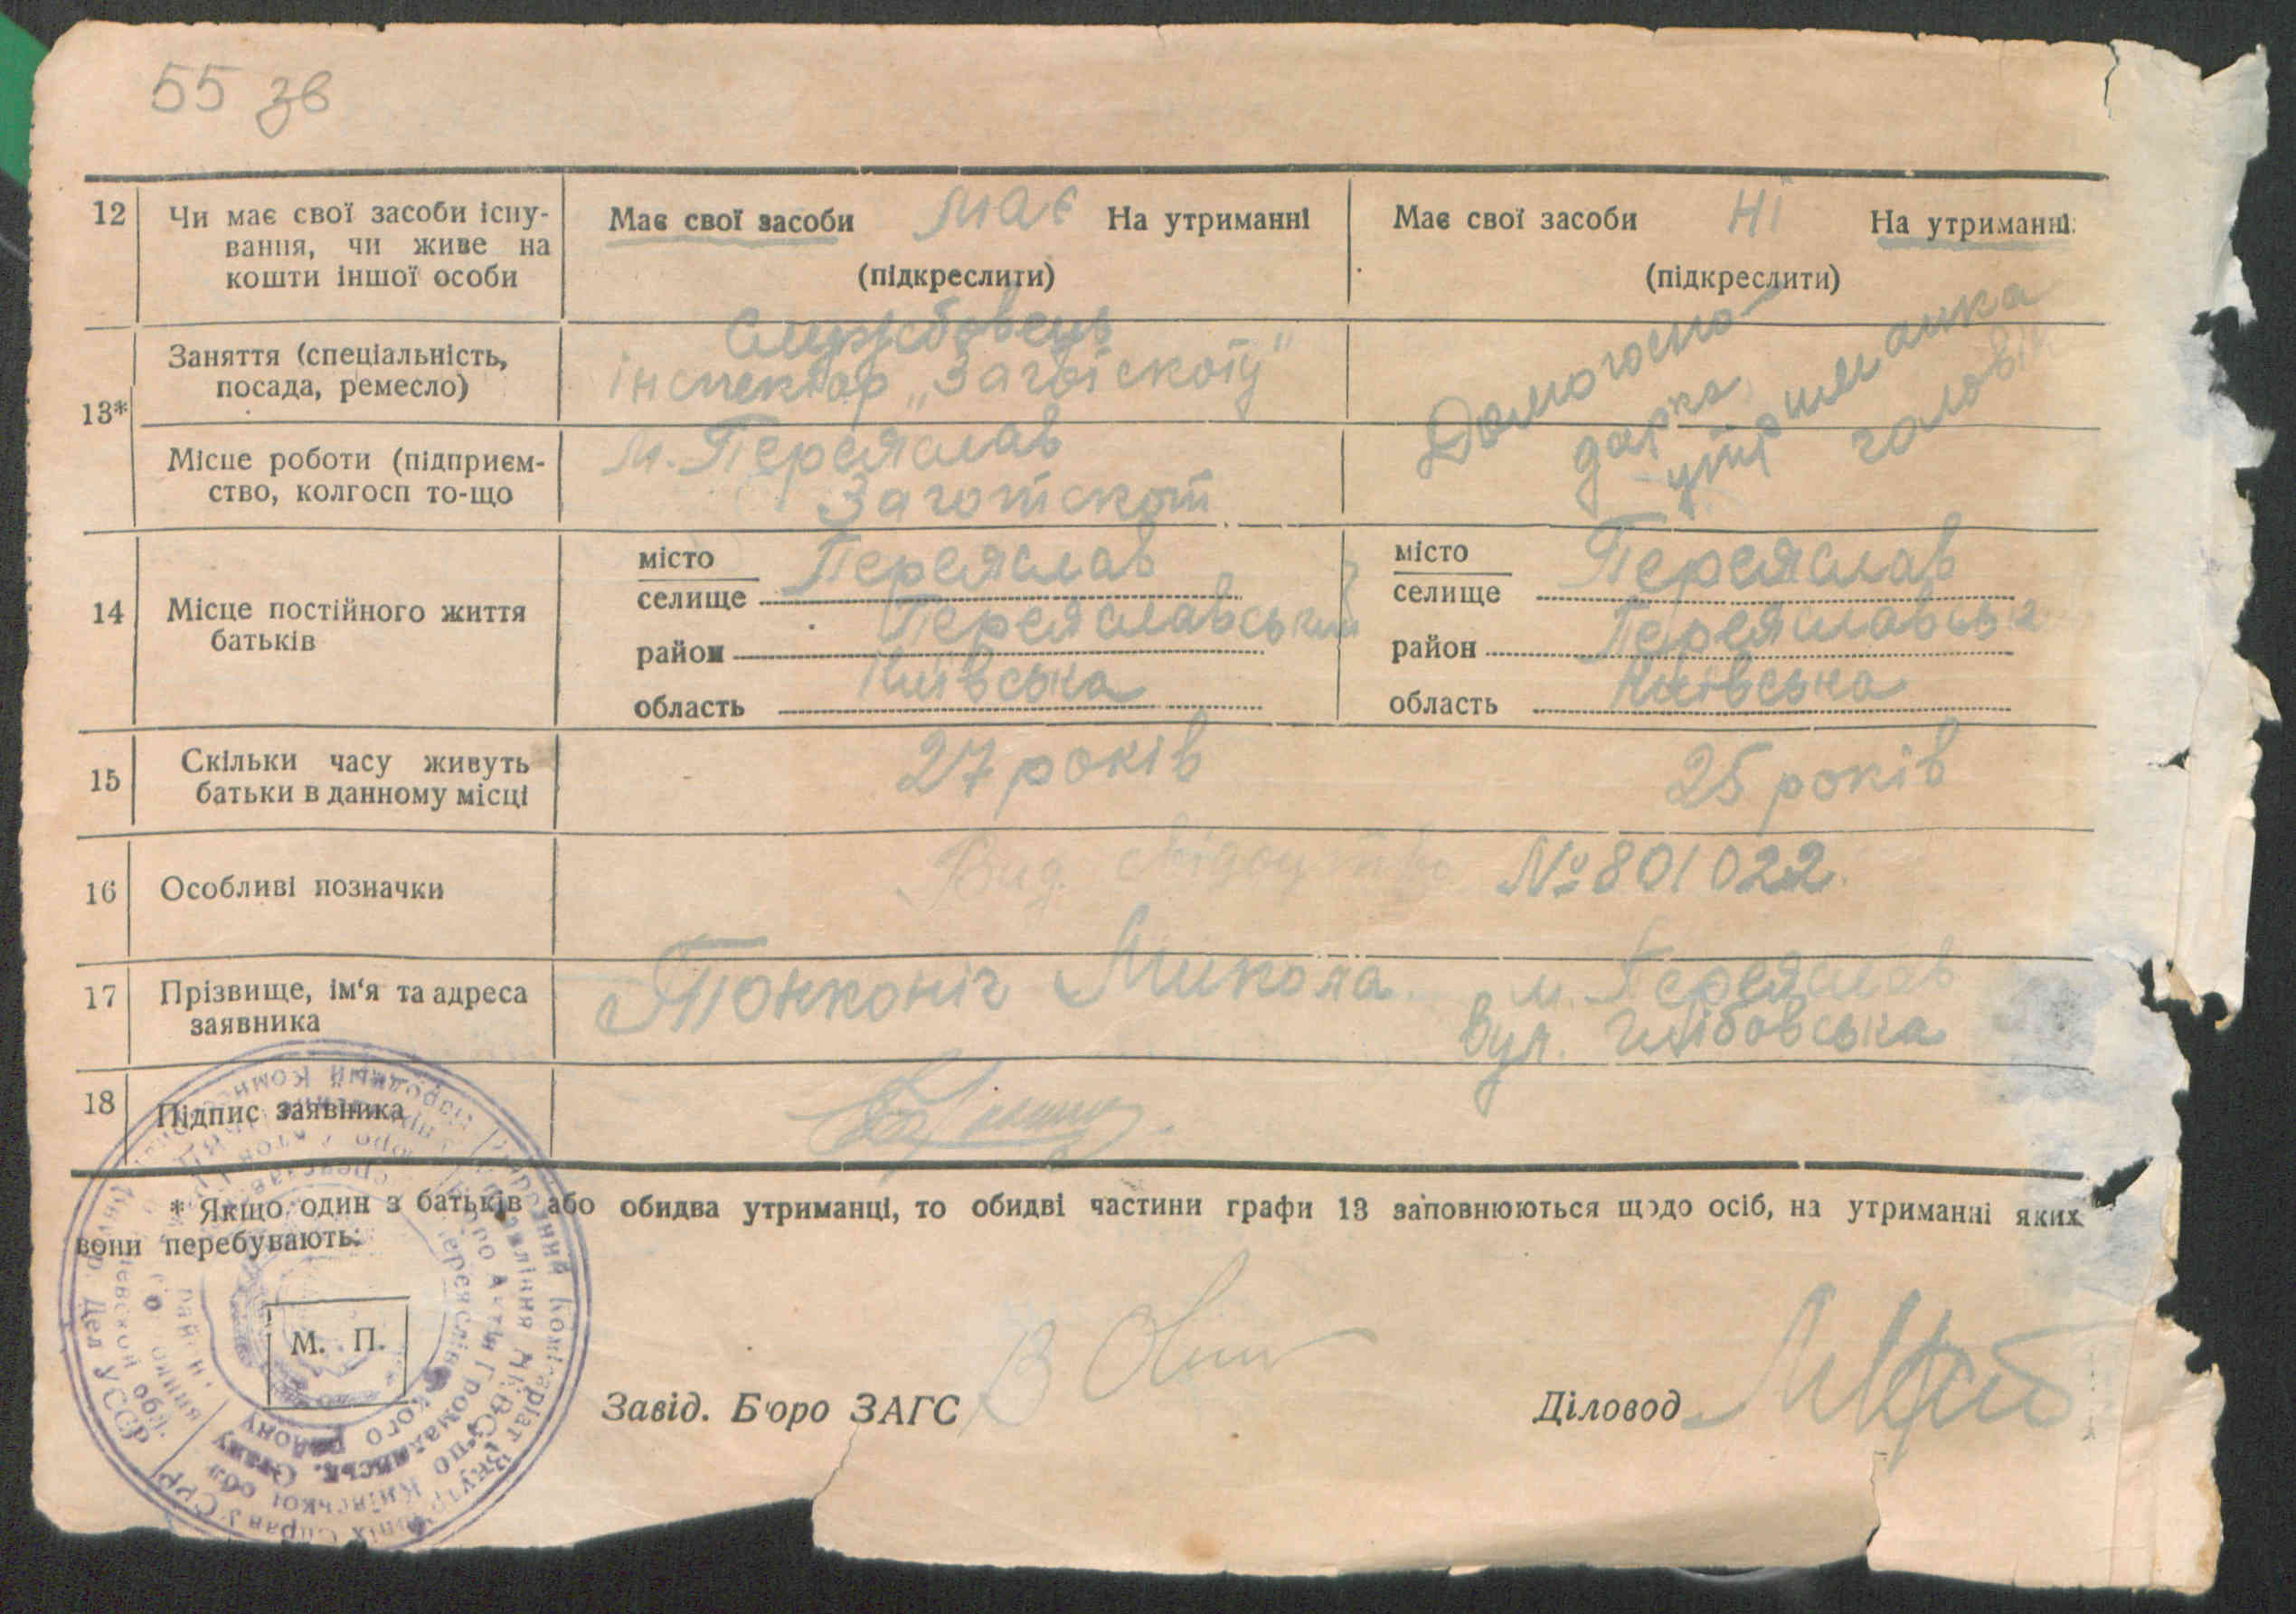 55 зв
12 Чи має свої засоби існу-
вання, чи живе на
кошти іншої особи
Має свої засоби має На утриманні
(підкреслити)
Має свої засоби ні На утриманні
(підкреслити)
13*
Заняття (спеціальність,
посада, ремесло)
Службовець
інспектор „Заготскоту"
Домогоспо-
дарка
утриманка
чолов
Місце роботи (підприєм-
ство, колгосп то-що
м. Переяслав
Заготскот
14 Місце постійного життя
батьків
місто Переяслав
селище
район Переяславський
область Київська
місто Переяслав
селище
район Переяславськ
область Київська
15 Скільки часу живуть
батьки в данному місці
27 років
25 років
16 Особливі позначки
Вид. свідоцтво № 801022.
17 Прізвище, ім'я та адреса
заявника
Тонконіг Микола
м. Переяслав
вул.
18 Підпис заявника
* Якщо один з батьків або обидва утриманці, то обидві частини графи 13 заповнюються щодо осіб, на утриманні яких
вони перебувають.
М. П.
Завід. Бюро ЗАГС
Діловод